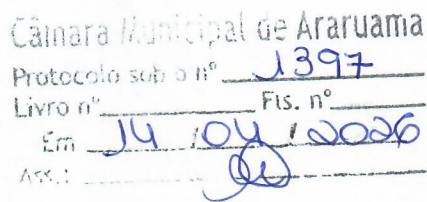 Câmara Municipal de Araruama
Protocolo sob o nº 1397
Livro nº Fls. nº
Em 14 / 04 / 2026
Ass.: